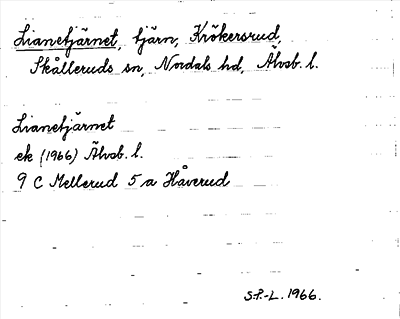 Lianetjärnet, tjärn, Krökersrud,
Skålleruds sn, Nordals hd, Älvsb. l.
Lianetjärnet
ek (1966) Älvsb. l.
9 C Mellerud 5 a Håverud
S.P.-L. 1966.